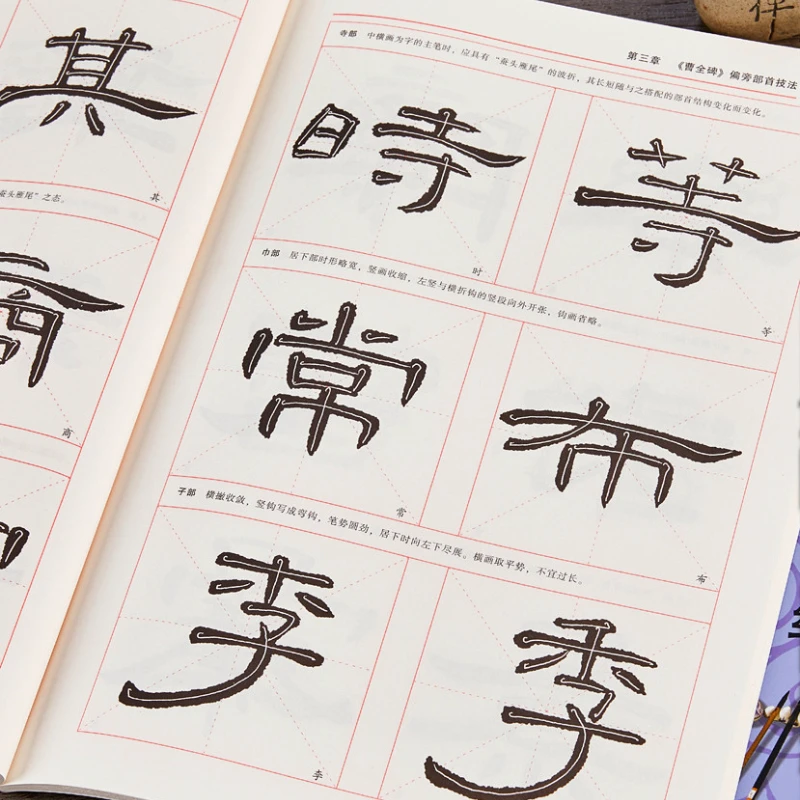 其
其
蚕头雁尾”之态。
裔
第三章 《曹全碑》偏旁部首技法
寺部 中横画为字的主笔时，应具有“蚕头雁尾”的波折，其长短随与之搭配的部首结构变化而变化。
時
等
时
等
巾部 居下部时形略宽，竖画收缩，左竖与横折钩的竖段向外开张，钩画省略。
常
布
常
布
子部 横撇收敛，竖钩写成弯钩，笔势圆劲，居下时向左下尽展。横画取平势，不宜过长。
李
季
李